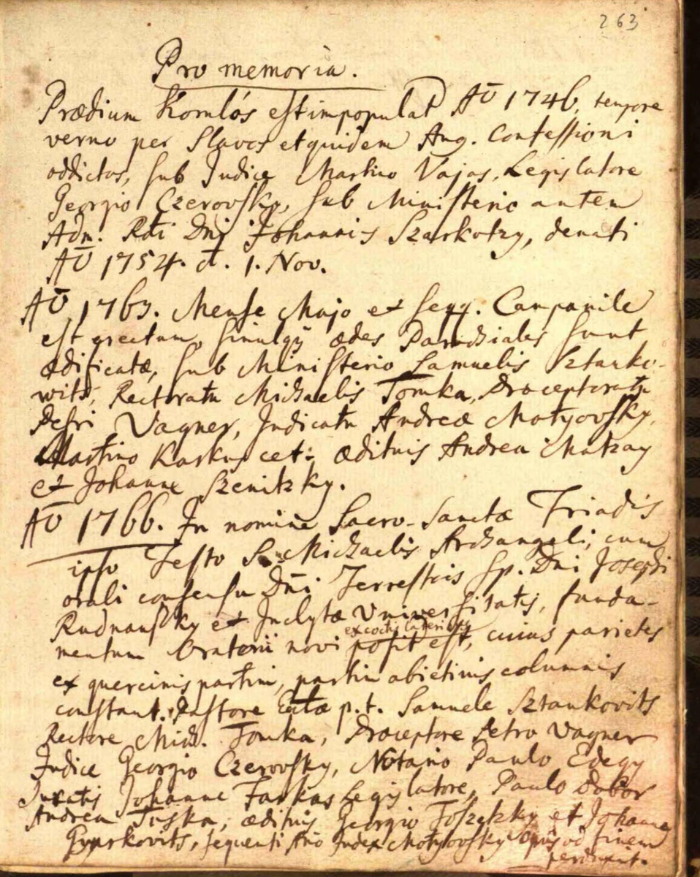 263
Pro memoria.
Prædium Komlós est impopulat Aō 1746. tempore
verno per Slavos et quidem Aug. Confessioni
addictos, sub Judice Martino Vajas, Legislatore
Georgio Czerovsky, sub Ministerio autem
Adm. Rdi Dni Johannis Szarkotzy, denati
Aō 1754. d. 1. Nov.
Aō 1763. Mense Majo et seqq. Campanile
est erectum, simulqȝ ædes Parochiales sunt
ædificatæ, sub Ministerio Samuelis Sztanko-
wits, Rectoratu Michaelis Tomka, Præceptoratu
Petri Vagner, Judicatu Andreæ Motyovsky,
Martino Karkus cet: ædituis Andrea Matzay
et Johanne Szenitzky.
Aō 1766. In nomine Sacro-Sanctæ Triadis
ipso Festo S. Michaelis Archangeli, cum
orali consensu Dni Terrestris Sp. Dni Josephi
Rudnanszky et Inclytæ Universitatis, funda-
mentum Oratorii novi ex coctis lateribus posit est, cuius parietes
ex quercinis partim, partim abietinis columnis
constant. Pastore Eccltæ p.t. Samuele Sztankovits
Rectore Mich. Tomka, Præceptore Petro Vagner
Judice Georgio Czerovsky, Notario Paulo Edegy
Juratis Johanne Farkas Legislatore, Paulo Dobor
Andrea Tuska, ædituis Georgio et Johanne
Gyurkovits, sequenti Ano Judex Motyovsky opus ad finem
perduxit.